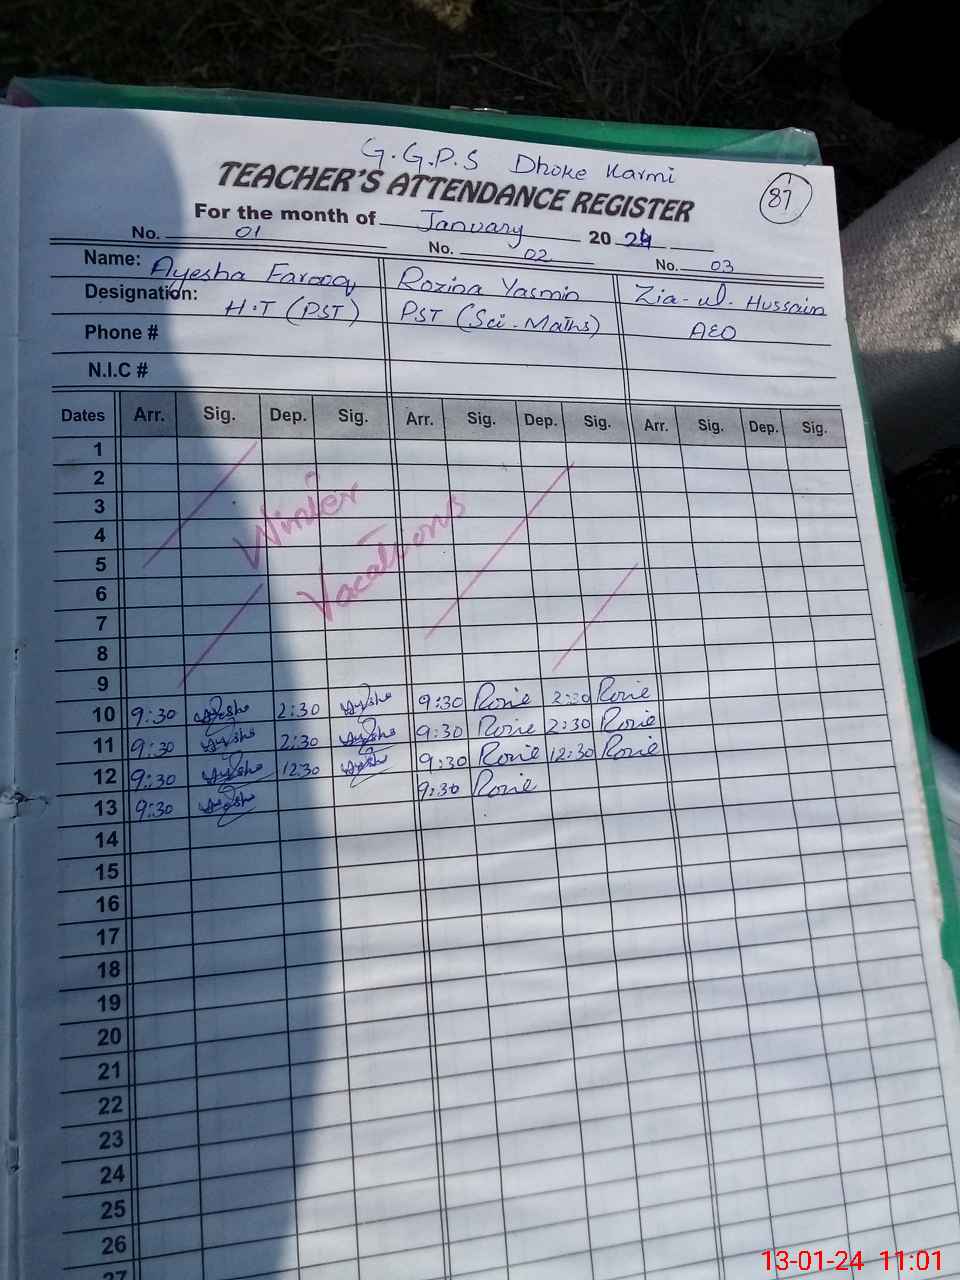 G.G.P.S Dhoke Karmi
TEACHER'S ATTENDANCE REGISTER
87
For the month of January 2024
No. 01 No. 02 No. 03
Name: Ayesha Farooq Rozina Yasmin Zia-ul-Hussain
Designation: H.T (PST) PST (Sci-Maths) AEO
Phone #
N.I.C #
Dates Arr. Sig. Dep. Sig. Arr. Sig. Dep. Sig. Arr. Sig. Dep. Sig.
1
2
3
4
5
6
7
8
9
Winter
Vacations
10 9:30 Aysha 2:30 Aysha 9:30 Rozie 2:30 Rozie
11 9:30 Aysha 2:30 Aysha 9:30 Rozie 2:30 Rozie
12 9:30 Aysha 12:30 Aysha 9:30 Rozie 12:30 Rozie
13 9:30 Aysha 9:30 Rozie
14
15
16
17
18
19
20
21
22
23
24
25
26
27
13-01-24 11:01